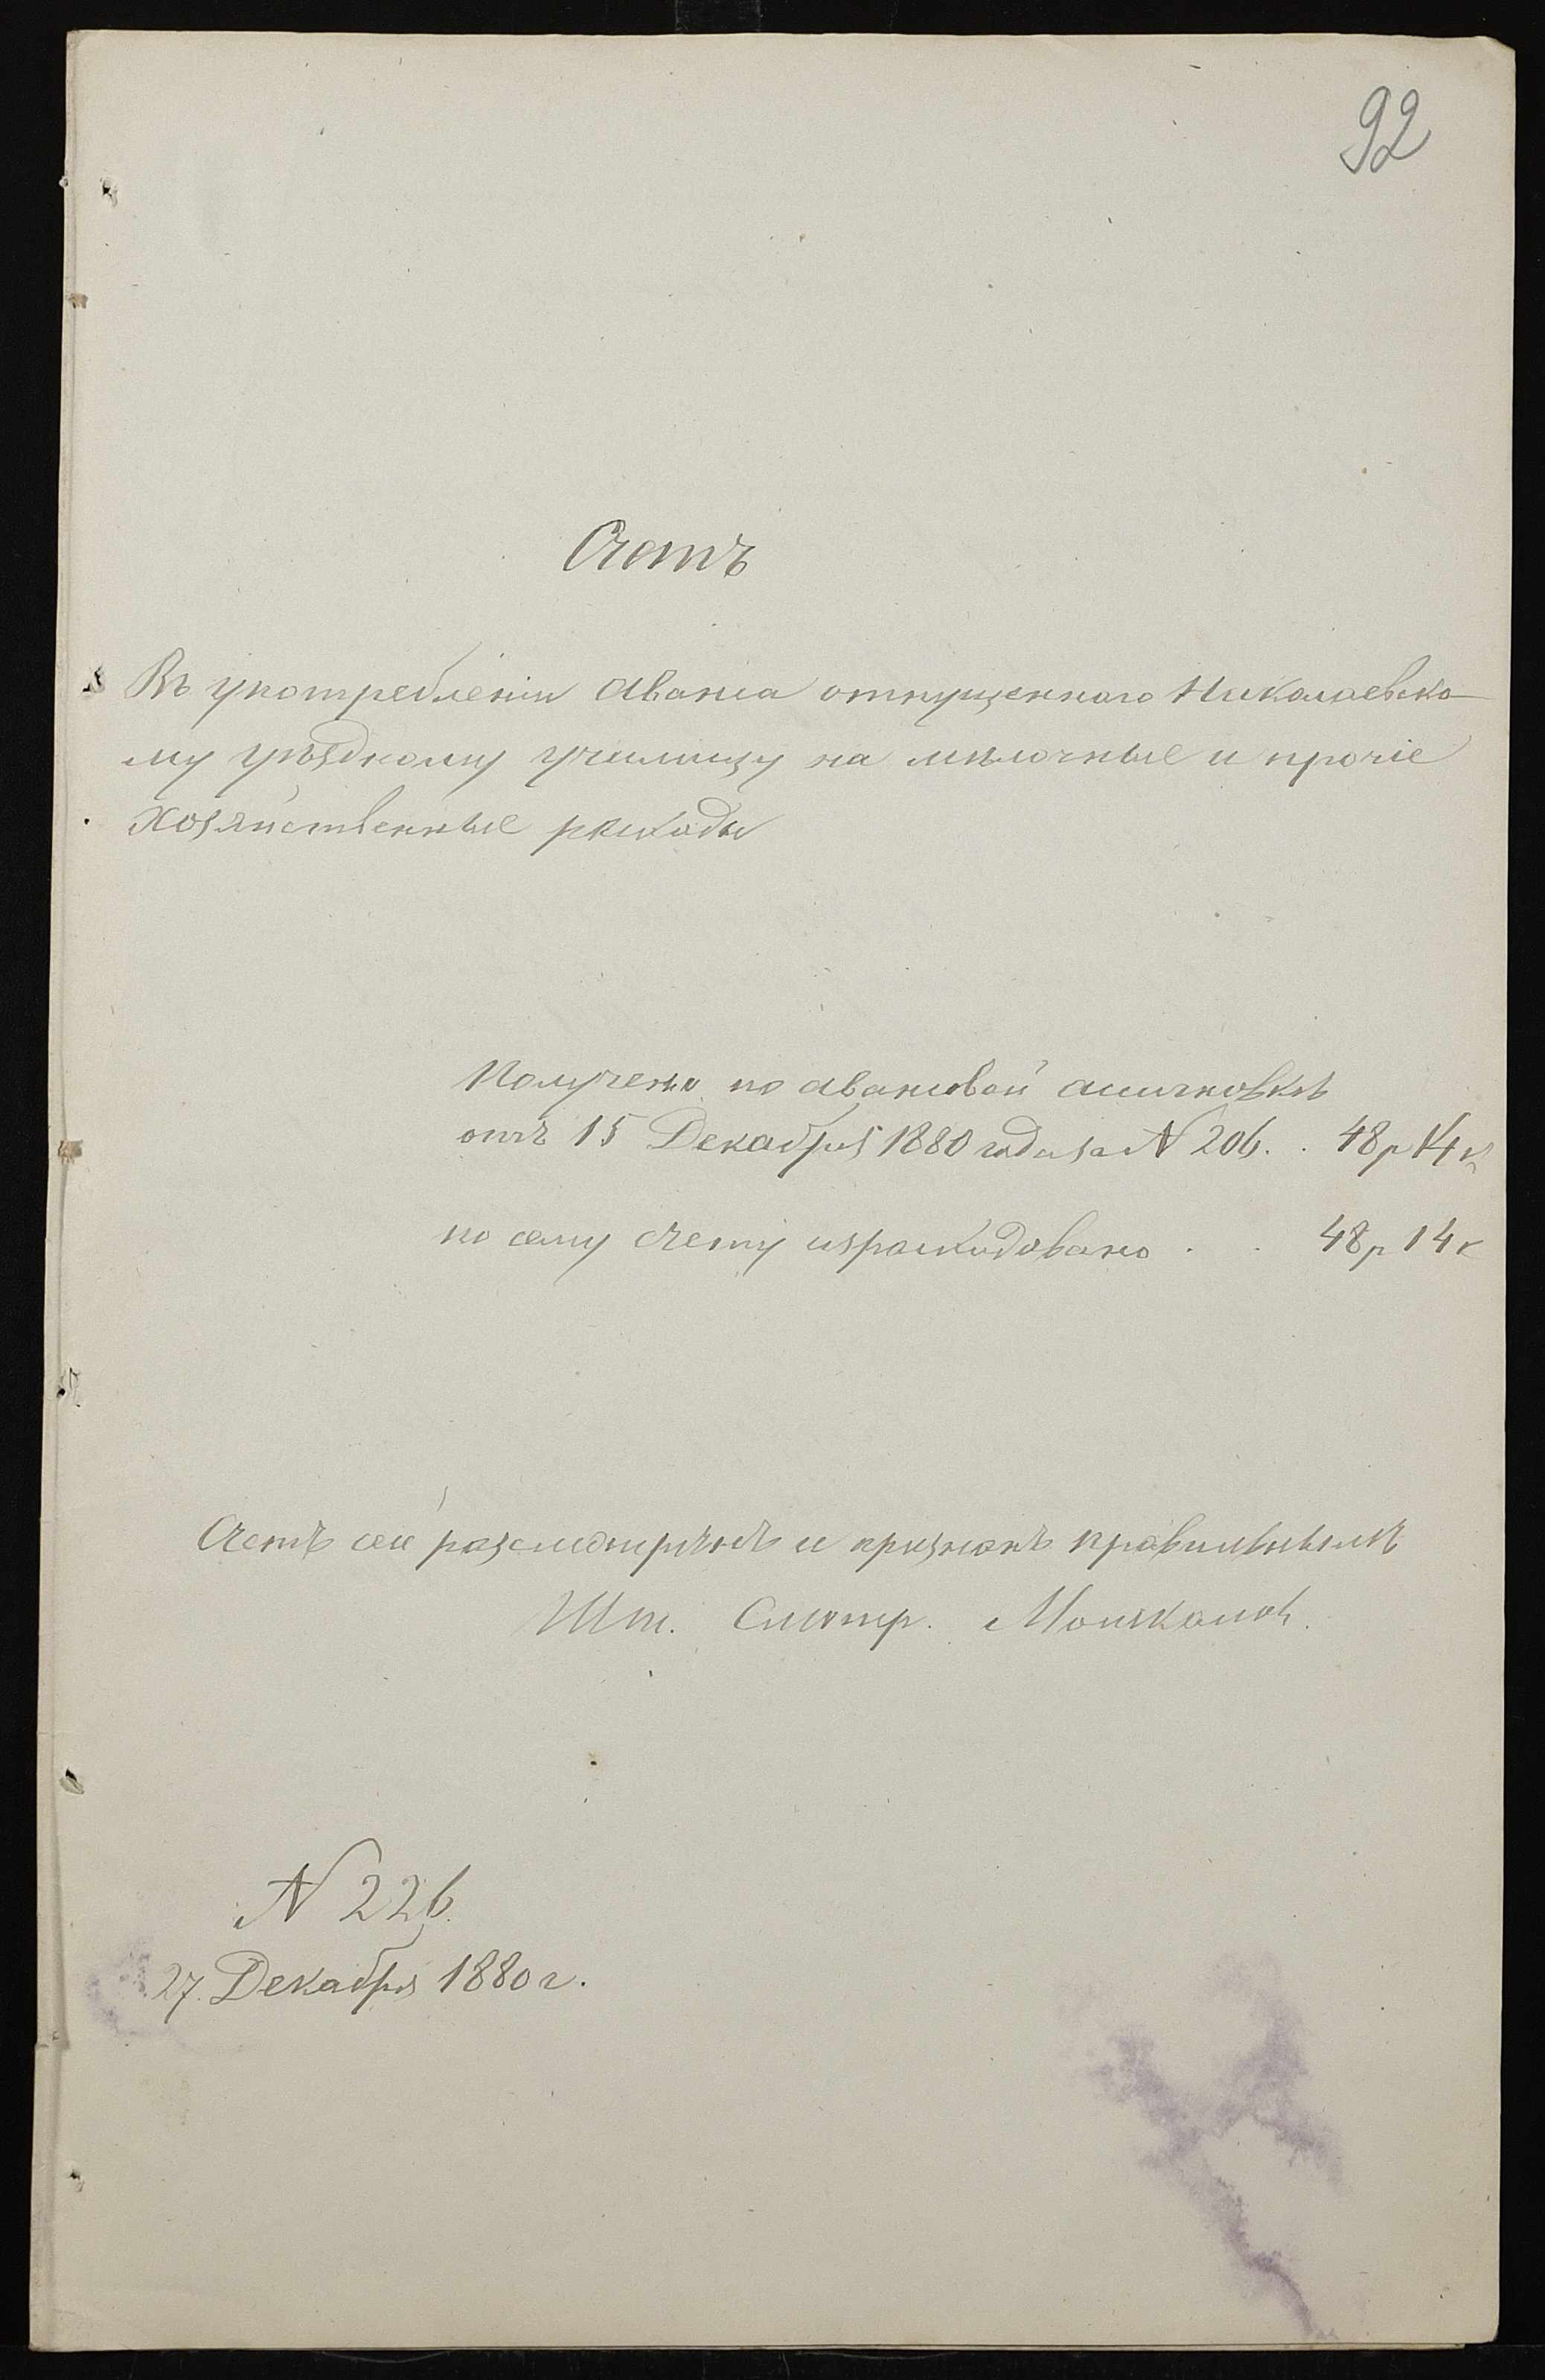 92
Счетъ
Въ употребленіи аванса отпущеннаго Николаевско-
му уѣздному училищу на мѣлочные и прочіе
хозяйственные расходы
Получено по авансовой ассигновкѣ
отъ 15 Декабря 1880 года за N 206. . 48р 14к
по сему счету израсходовано . . 48р 14к
Счетъ сей разсмотрѣнъ и признанъ правильнымъ
Шт. Смотр.
N 226.
27. Декабря 1880 г.